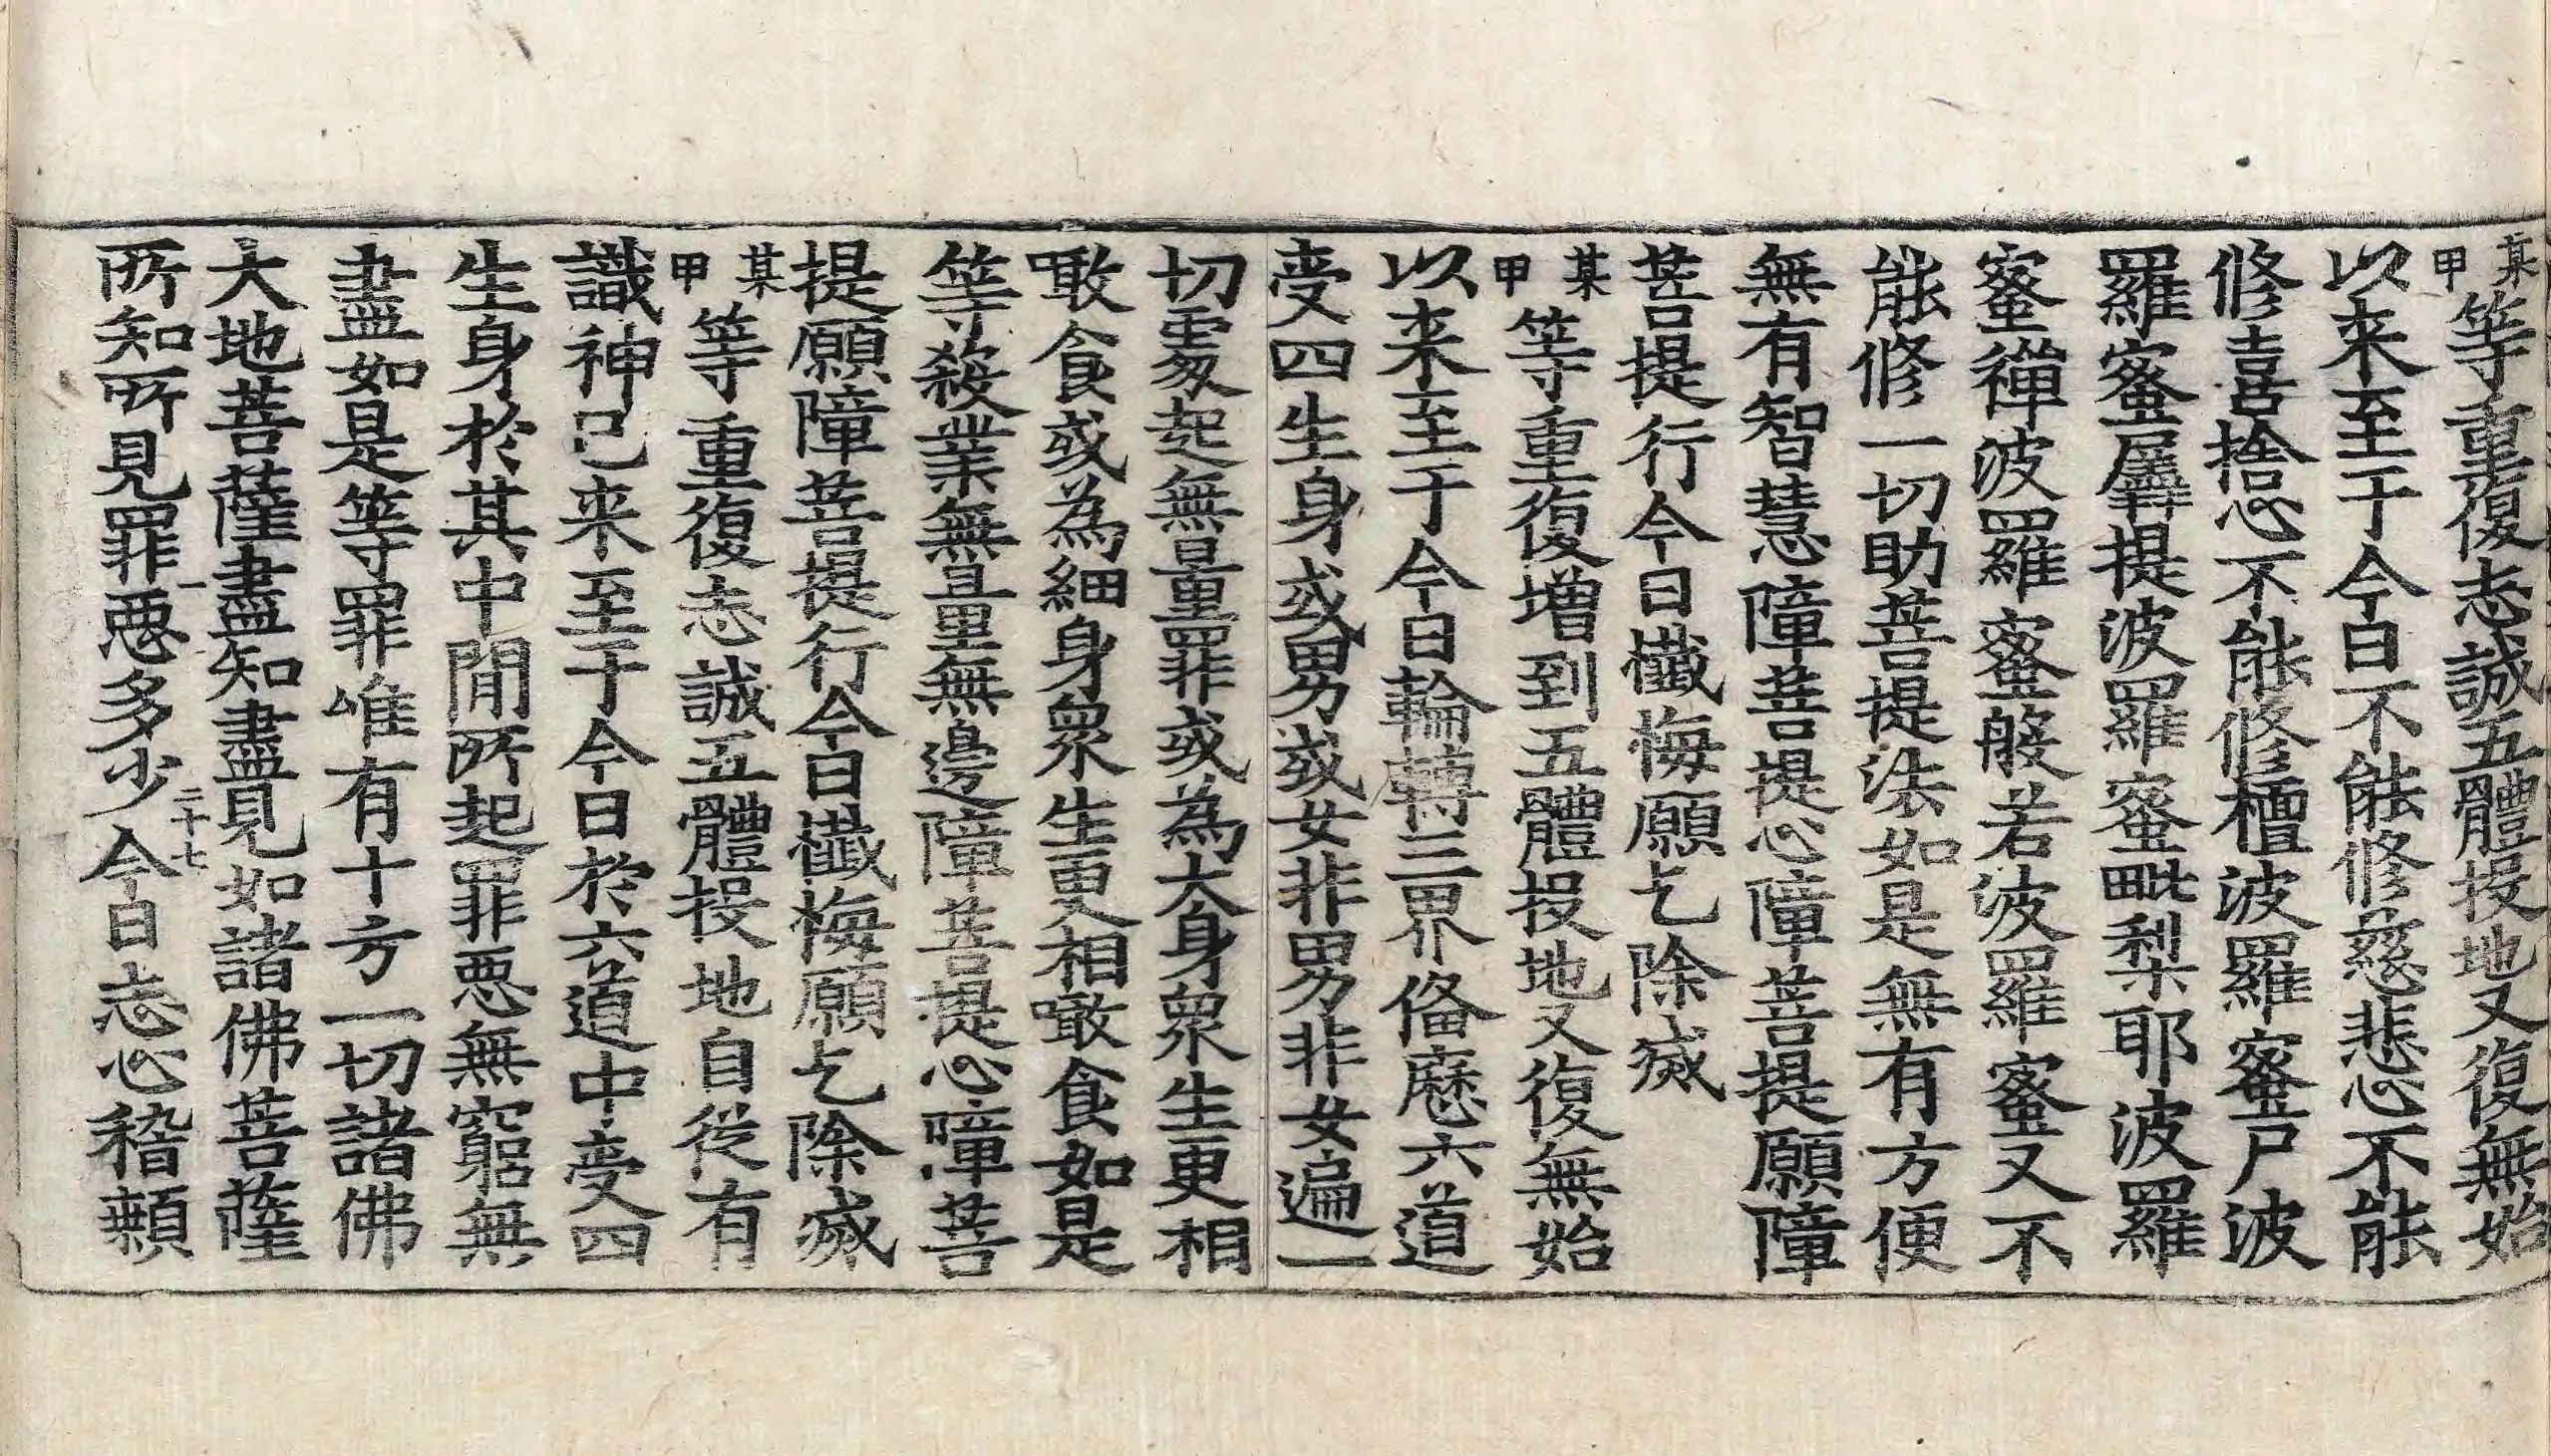 某甲等重復志誠五體投地又復無始
以来至于今日不能修慈悲心不能
修喜捨心不能修檀波羅蜜尸波
羅蜜羼提波羅蜜毗梨耶波羅
蜜禪波羅蜜般若波羅蜜又不
能修一切助菩提法如是無有方便
無有智慧障菩提心障菩提願障
菩提行今日懺悔願乞除滅
某甲等重復增到五體投地又復無始
以来至于今日輪轉三界俻歷六道
受四生身或男或女非男非女遍一
切處起無量罪或為大身衆生更相
噉食或為細身衆生更相噉食如是
等殺業無量無邊障菩提心障菩
提願障菩提行今日懺悔願乞除滅
某甲等重復志誠五體投地自從有
識神已来至于今日於六道中受四
生身於其中間所起罪惡無窮無
盡如是等罪唯有十方一切諸佛
大地菩薩盡知盡見如諸佛菩薩
一 二十七
所知所見罪惡多少今日志心稽顙